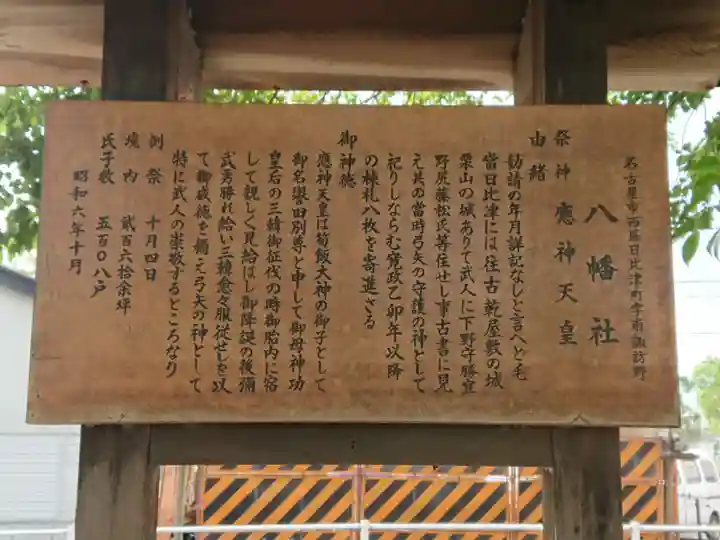 名古屋市西区日比津町字南諏訪野
八幡社
祭神 應神天皇
由緒
勧請の年月詳記なしと言へとも
當日比津には住古乾屋敷の城
栗山の城ありて武人に下野守勝重
野尻藤松氏等住せし事古書に見
え其の當時弓矢の守護の神として
祀りしならむ寛政乙卯年以降
の棟札八枚を寄進さる
御神徳
應神天皇は笥飯大神の御子として
御名譽田別尊と申して御母神功
皇后の三韓御征伐の時御胎内に宿
して親しく見給はし御降誕の後彌
武勇勝れ給い三韓愈々服従せしを以
て御威徳を稱え弓矢の神として
特に武人の崇敬するところなり
例祭 十月四日
境内 貳百六拾余坪
氏子数 五百〇八戸
昭和六年十月